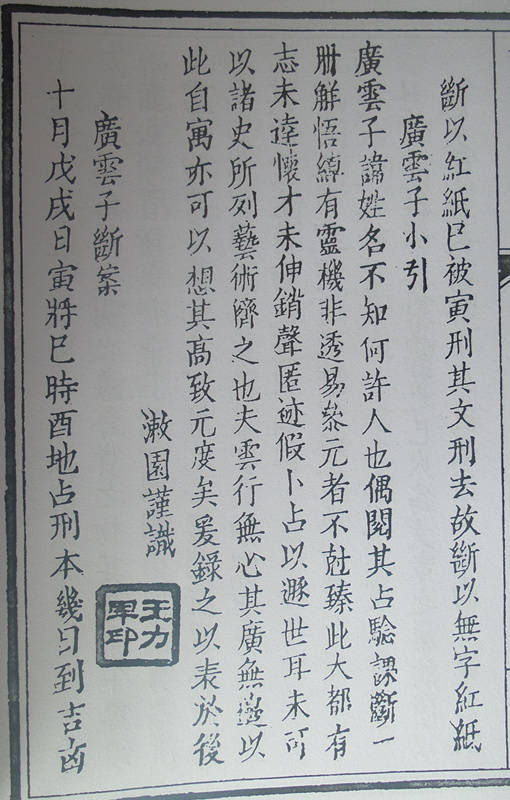 斷以紅紙巳被寅刑其文刑去故斷以無字紅紙
廣雲子小引
廣雲子諱姓名不知何許人也偶閱其占驗課斷一
冊解悟縳有靈機非透易叅元者不兙臻此大都有
志未達懷才未伸銷聲匿迹假卜占以遯世耳未可
以諸史所列藝術儕之也夫雲行無心其廣無邊以
此自寓亦可以想其高致元度矣爰錄之以表於後
漱園謹識
王力軍印
廣雲子斷案
十月戊戌日寅將巳時酉地占刑本幾日到吉凶